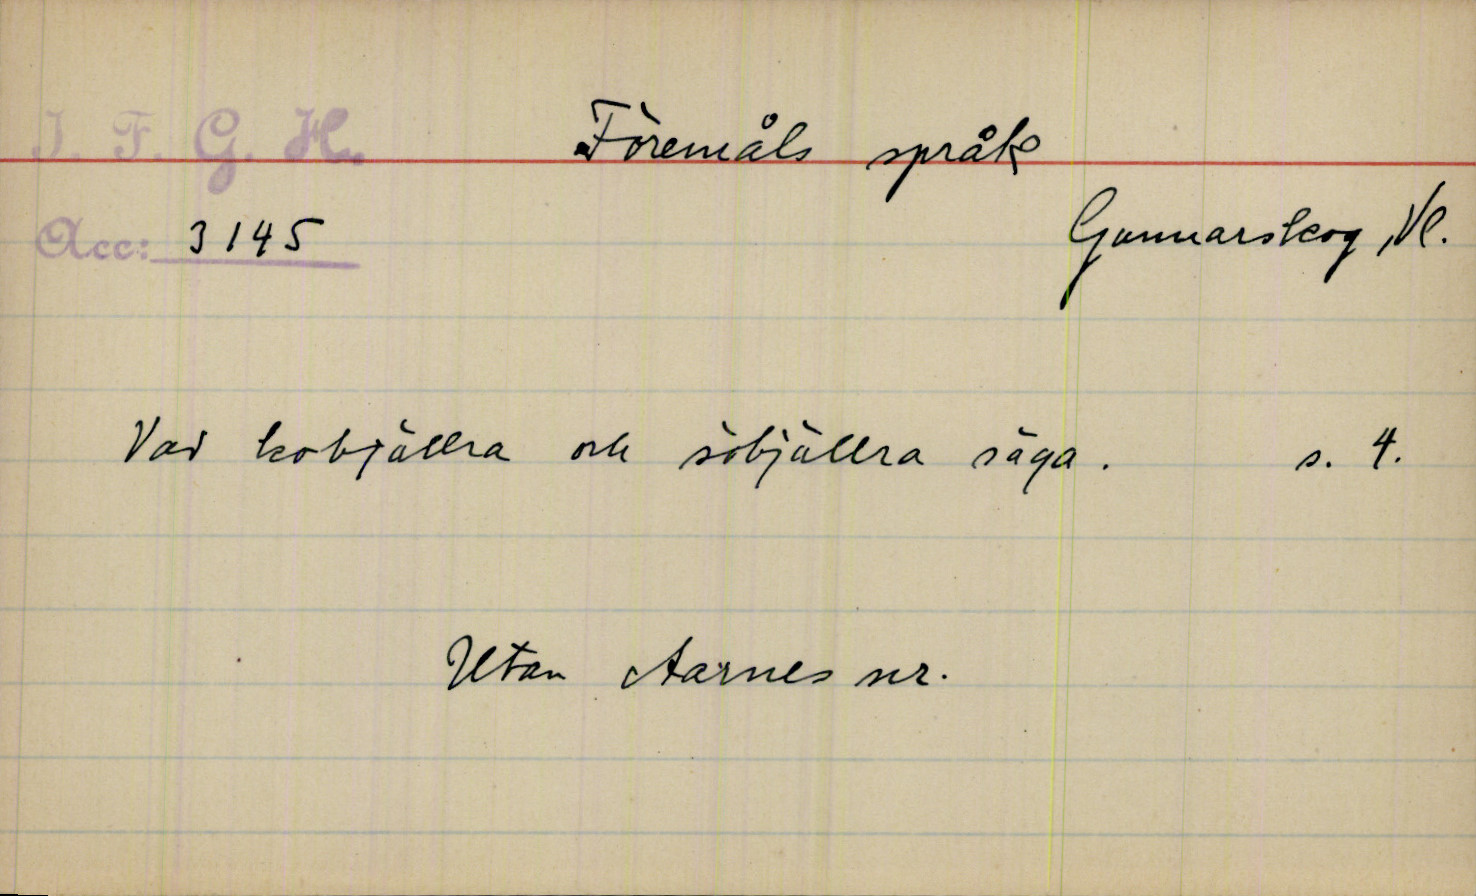 I. F. G. H. Föremåls språk
Acc: 3145 Gunnarskog, Vl.
Vad kobjällra och söbjällra säga. s. 4.
Utan Aarnes nr.